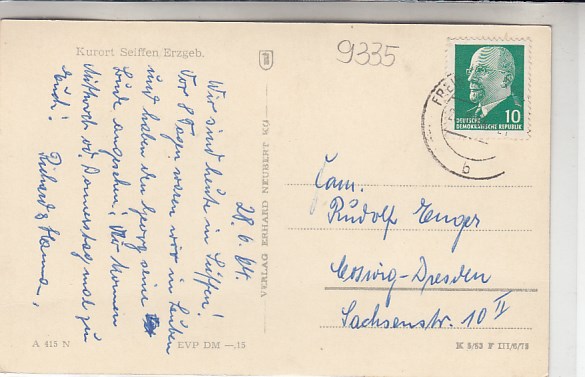 Kurort Seiffen/Erzgeb.
9335
28.6.64.
Wir sind heute in Seiffen!
Vor 8 Tagen waren wir in Lauben
und haben den Georg seine
Laube angesehen! Wir kommen
Mittwoch od. Donnerstag mal zu
Euch!
Richard & Hanna,
VERLAG ERHARD NEUBERT KG
FREI
DEUTSCHE
DEMOKRATISCHE REPUBLIK
10
b
Fam.
Rudolf Enger
Coswig-Dresden
Sachsenstr. 10 II
A 415 N
EVP DM —,15
K 5/63 F III/6/78